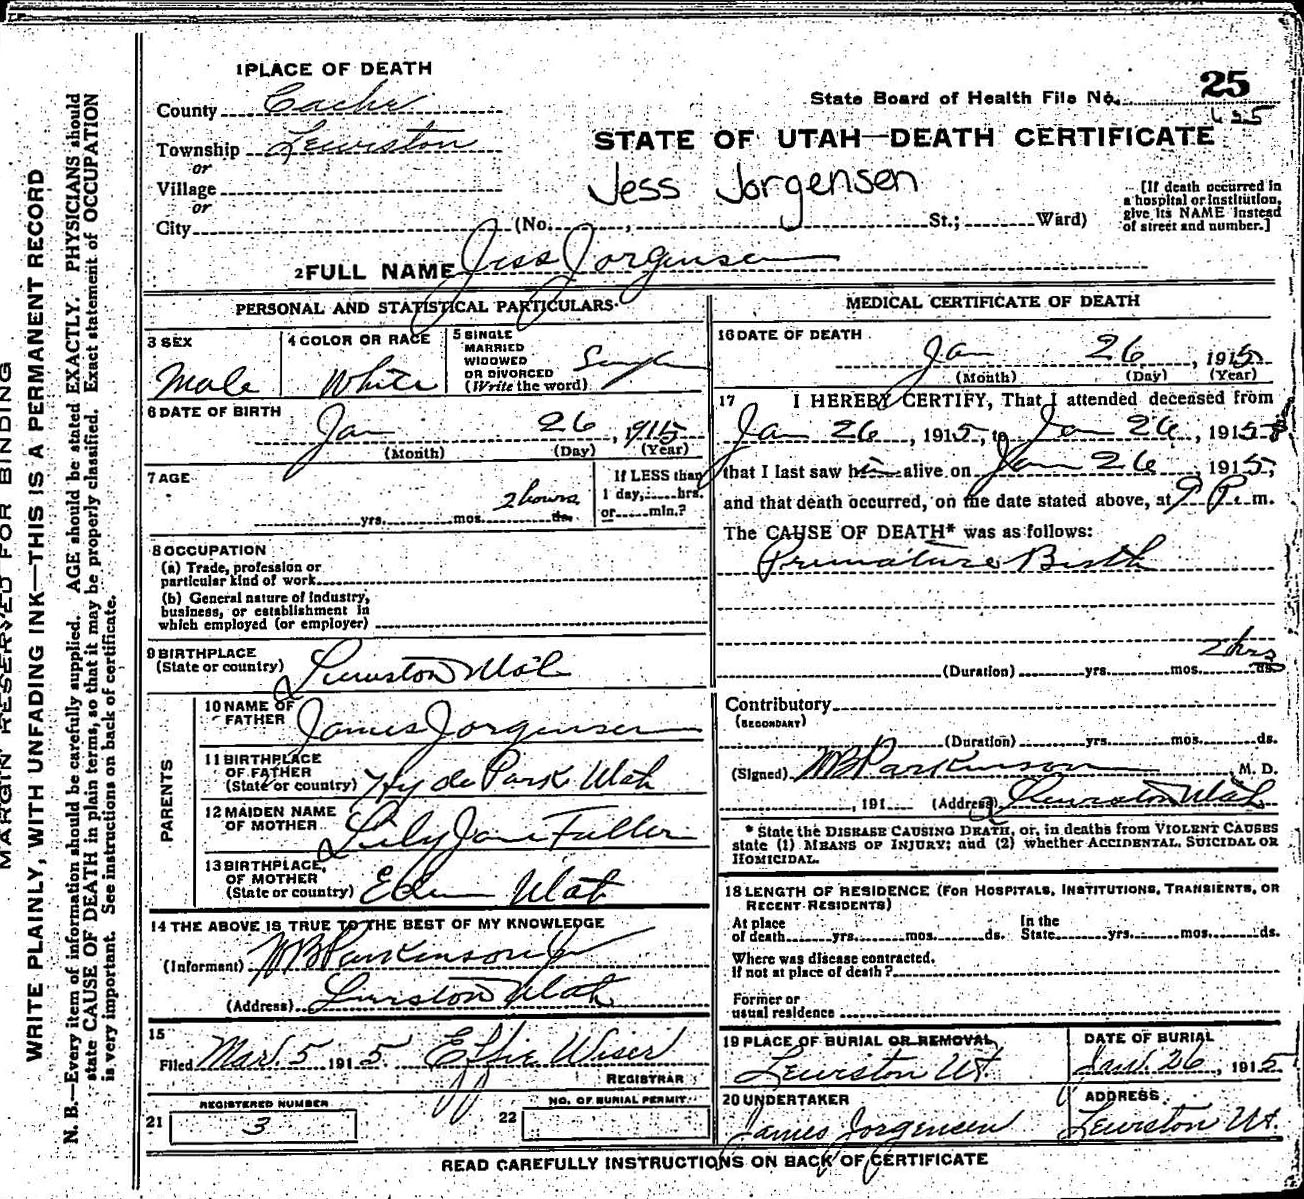 MARGIN RESERVED FOR BINDING
WRITE PLAINLY, WITH UNFADING INK—THIS IS A PERMANENT RECORD
N. B.—Every item of information should be carefully supplied. AGE should be stated EXACTLY. PHYSICIANS should
state CAUSE OF DEATH in plain terms, so that it may be properly classified. Exact statement of OCCUPATION
is very important. See instructions on back of certificate.
1 PLACE OF DEATH
County Cache
Township Lewiston
or
Village
or
City (No. , St.; Ward)
25
State Board of Health File No.
STATE OF UTAH—DEATH CERTIFICATE
Jess Jorgensen
[If death occurred in
a hospital or institution,
give its NAME instead
of street and number.]
2 FULL NAME Jess Jorgensen
PERSONAL AND STATISTICAL PARTICULARS
3 SEX
Male
4 COLOR OR RACE
White
5 SINGLE
MARRIED
WIDOWED
OR DIVORCED
(Write the word)
Single
6 DATE OF BIRTH
Jan 26, 1915
(Month) (Day) (Year)
7 AGE
yrs. mos. 2 hours ds.
If LESS than
1 day, hrs.
or min.?
8 OCCUPATION
(a) Trade, profession or
particular kind of work
(b) General nature of industry,
business, or establishment in
which employed (or employer)
9 BIRTHPLACE
(State or country) Lewiston Utah
PARENTS
10 NAME OF
FATHER James Jorgensen
11 BIRTHPLACE
OF FATHER
(State or country) Hyde Park Utah
12 MAIDEN NAME
OF MOTHER Lily Jane Fuller
13 BIRTHPLACE
OF MOTHER
(State or country) Eden Utah
14 THE ABOVE IS TRUE TO THE BEST OF MY KNOWLEDGE
(Informant) WB Parkinson Jr
(Address) Lewiston Utah
15
Filed Mar. 5 1915 Effie Wiser
REGISTRAR
REGISTERED NUMBER
21 3
NO. OF BURIAL PERMIT
22
MEDICAL CERTIFICATE OF DEATH
16 DATE OF DEATH
Jan 26, 1915
(Month) (Day) (Year)
17 I HEREBY CERTIFY, That I attended deceased from
Jan 26, 1915, to Jan 26, 1915,
that I last saw him alive on Jan 26, 1915,
and that death occurred, on the date stated above, at 9 P. m.
The CAUSE OF DEATH* was as follows:
Premature Birth
(Duration) yrs. mos. 2 hrs ds.
Contributory
(SECONDARY)
(Duration) yrs. mos. ds.
(Signed) WB Parkinson, M. D.
, 191 (Address) Lewiston Utah
* State the DISEASE CAUSING DEATH, or, in deaths from VIOLENT CAUSES
state (1) MEANS OF INJURY; and (2) whether ACCIDENTAL, SUICIDAL OR
HOMICIDAL.
18 LENGTH OF RESIDENCE (FOR HOSPITALS, INSTITUTIONS, TRANSIENTS, OR
RECENT RESIDENTS)
At place
of death yrs. mos. ds.
In the
State yrs. mos. ds.
Where was disease contracted,
if not at place of death?
Former or
usual residence
19 PLACE OF BURIAL OR REMOVAL
Lewiston Ut.
DATE OF BURIAL
Jan. 26, 1915
20 UNDERTAKER
James Jorgensen
ADDRESS
Lewiston Ut.
READ CAREFULLY INSTRUCTIONS ON BACK OF CERTIFICATE